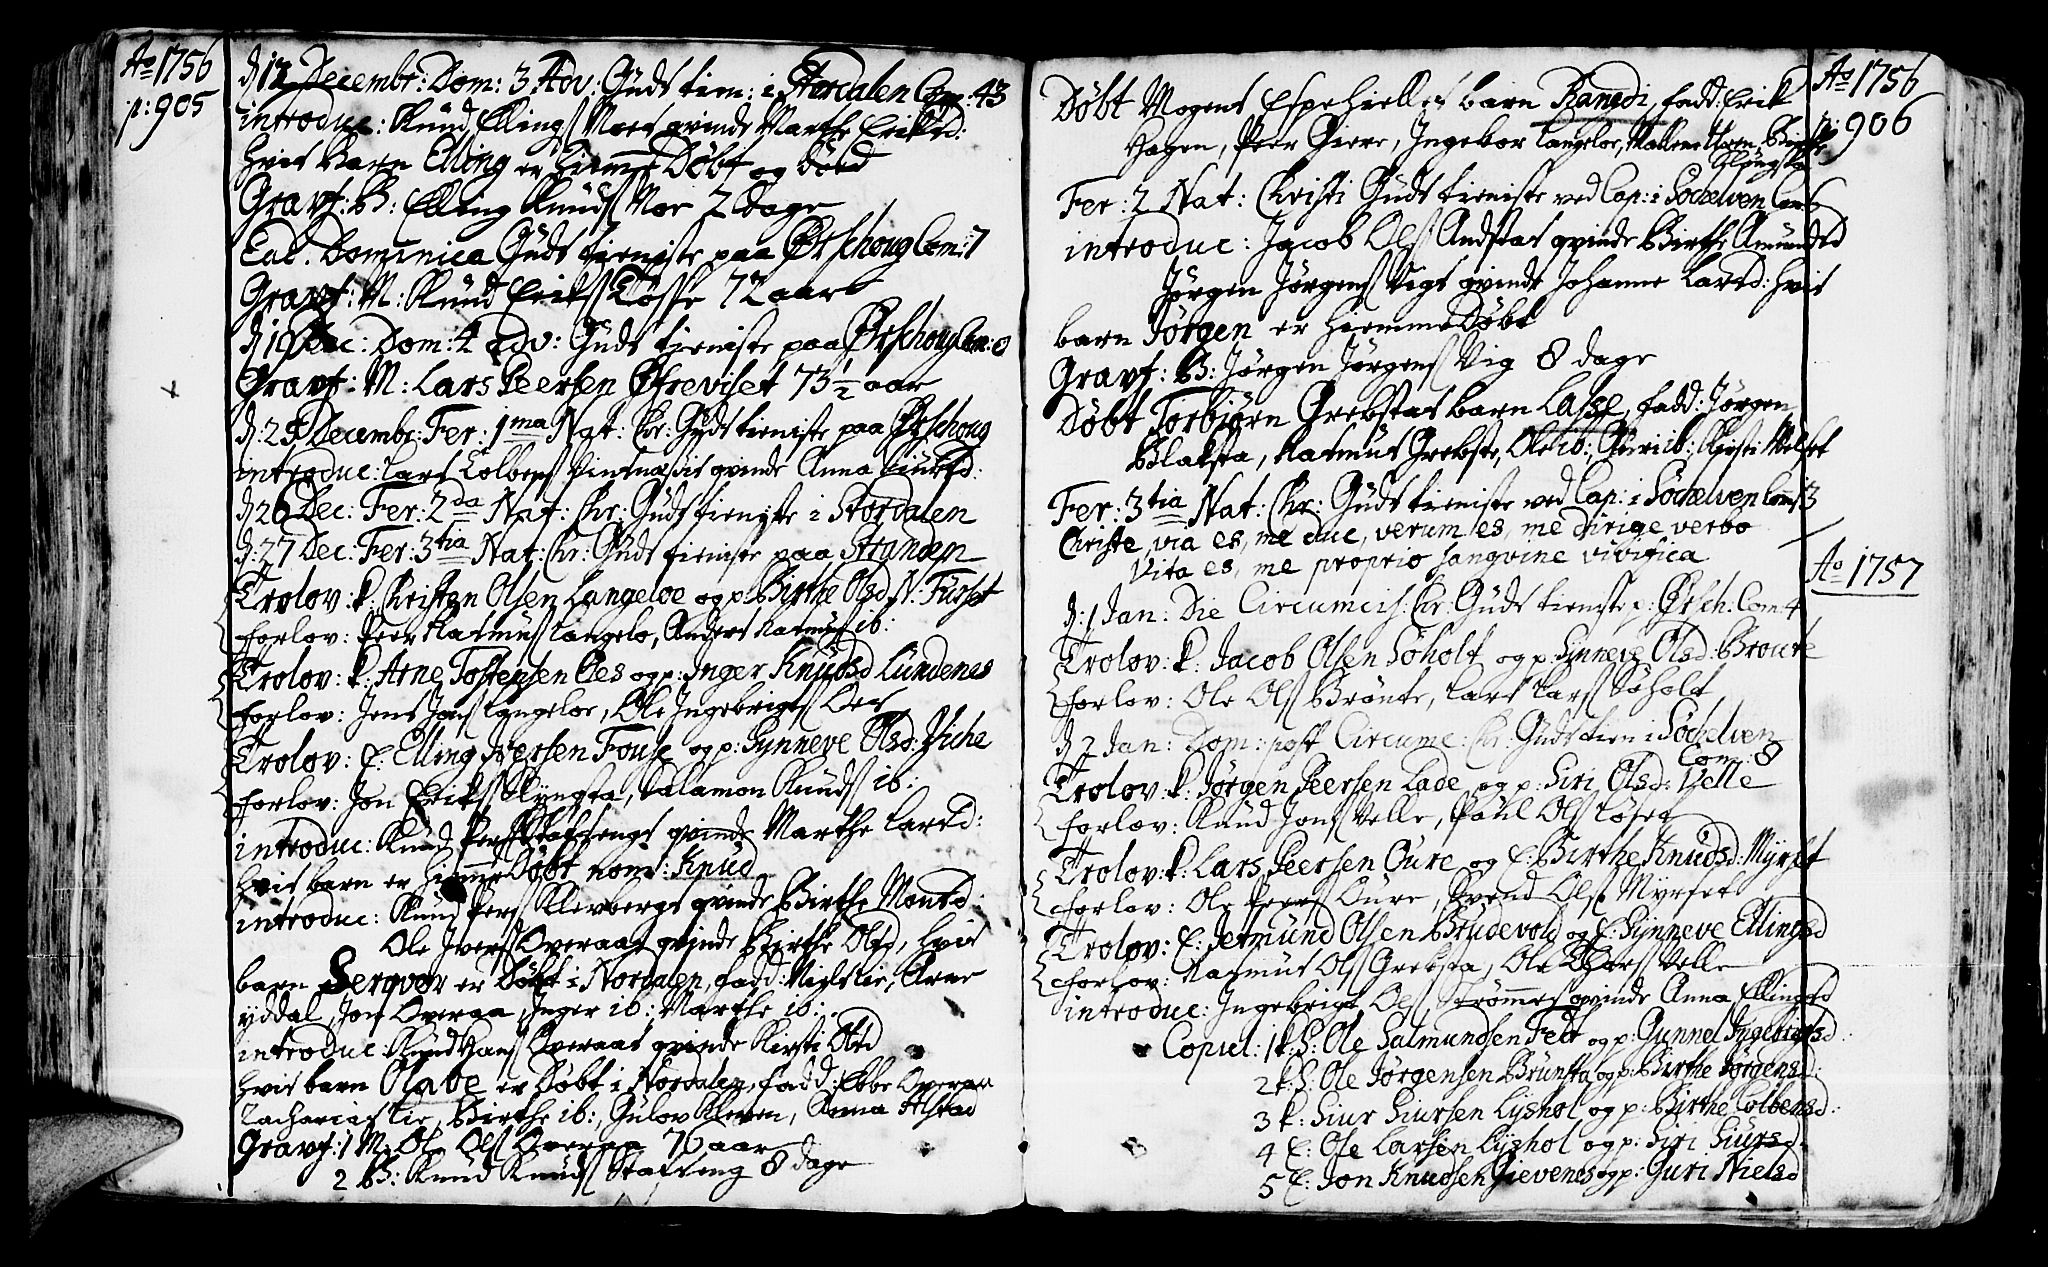 Ao 1756
p: 905
d. 12 Decembr: Dom: 3 Adv: Guds tien: i Stordalen Com: 43
introduc: Knud Ellings Moes qvinde Marthe Eriksd:
hvis barn Elling er hiemme Døbt og Død
Gravf: B: Elling Knuds Moe 2 dage
Ead. Dominica Guds tieniste paa Ørschoug Com: 7
Gravf: M: Knud Eriks Tosse 72 aar
d. 19 Dec: Dom: 4 Adv: Guds tieniste paa Ørschoug Com: 8
Gravf: M: Lars Peersen Øfreviset 73 1/2 aar
d. 25 Decembr: Fer: 1ma Nat: Chr: Guds tieniste paa Ørschoug
introduc: Lars Colbens qvinde Anna
d. 26 Dec: Fer: 2da Nat: Chr: Guds tieniste i Stordalen
d: 27 Dec: Fer: 3tia Nat: Chr: Guds tieniste paa Stranden
Trolov: k: Christen Olsen Langeloe og p: Birthe Olsd N: Furset
forlov: Peer Rasmus Langelo, Anders Rasmus ib:
Trolov: k: Arne Tostensen Oes og p: Inger Knudsd Lundenes
forlov: Jens Jons Langeloe, Ole Ingebrigts Oes
Trolov: E: Elling Iversen Fouse og p: Synneve Olsd: Viche
forlov: Jon Eriks Slyngsta, Salamon Knuds ib:
introduc: Knud Peers Stafsengs qvinde Marthe Larsd:
hvis barn er hiemme Døbt nom: Knud
introduc: Knud Pers Klevbergs qvinde Birthe Monsd:
Ole Ivers Overaas qvinde Birthe Olsd, hvis
barn Serqver er Døbt i Nordalen, fadd: Nils Lie, Arne
yddal, Jon Overaa, Inger ib: Marthe ib:
introduc: Knud Hans Overaas qvinde Kirsti Olsd
hvis barn Olave er Døbt i Nordalen, fadd: Ebbe Overaa
Zacharias Lie, Birthe ib:, Gulov Kleven, Anna Alstad
Gravf: 1 M: Ole Ols Overaa 76 aar
2 B: Knud Knuds Stafseng 8 dage
Ao 1756
p: 906
Døbt Mogens Espehielles barn Ranedi, fadd: Erik
Hagen, Peer Giere, Ingebor Langeloe, Birthe
Slyngsta
Fer: 2 Nat: Christi Guds tieniste ved Cap: i Søchelven Com 6
introduc: Jacob Ols Andstas qvinde Birthe Amundsd
Jørgen Jørgens Vigs qvinde Johanne Larsd: hvis
barn Jørgen er hiemme Døbt
Gravf: B: Jørgen Jørgens Vig 8 dage
Døbt Torbjørn Grebstas barn Lasse, fadd: Jørgen
Blaksta, Rasmus Grebste, Ole ib: Guri ib: Kirsti Velset
Fer: 3tia Nat: Chr: Guds tieniste ved Cap: i Søchelven Com 3
Christe, via es, me duc, verum es, me dirige verbo
Vita es, me proprio sangvine vivifica
Ao 1757
d: 1 Jan: Die Circumcis: Chr: Guds tieniste p: Ørsch: Com 4
Trolov: k: Jacob Olsen Søholt og p: Synneve Olsd: Bronte
forlov: Ole Ols Brönte, Lars Lars Søholt
d. 2 Jan: Dom: post Circumc: Chr: Guds tien i Søchelven
Com: 8
Trolov: k: Jørgen Peersen Lade og p: Siri Olsd: Velle
forlov: Knud Jons Velle, Poul Ols Løset
Trolov: k: Lars Peersen Oure og E: Birthe Knudsd: Myrset
forlov: Ole Peers Oure, Svend Ols Myrset
Trolov: E: Jermund Olsen Brudevold og E: Synneve Ellingsd
forlov: Rasmus Ols Greksta, Ole Lars Velle
introduc: Ingebrigt Ols Strømmes qvinde Anna Ellingsd
Copul: 1 k: S: Ole Salmundsen Fedt og p: Gunnel Ingebrigtsd:
2 k: S: Ole Jørgensen Brunsta og p: Birthe Jørgensd:
3 k: Siur Siursen Lyshol og p: Birthe Colbensd:
4 E: Ole Larsen Lyshol og p: Siri Siursd
5 E: Jon Knudsen Gievenes og p: Guri Nielsd